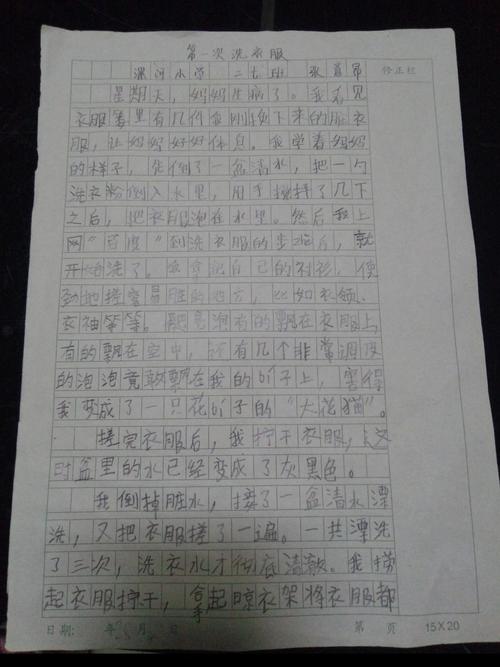 第一次洗衣服
漯河小学 二七班 张
修正栏
星期天，妈妈生病了。我看见
衣服篓里有几件我刚换下来的脏衣
服，让妈妈好好休息。我学着妈妈
的样子，先倒了一盆清水，把一勺
洗衣粉倒入水里，用手搅拌了几下
之后，把衣服泡在水里。然后我上
网“百度”到洗衣服的步骤后，就
开始洗了。我拿起自己的衬衫，使
劲地搓容易脏的地方，比如衣领、
衣袖等等。肥皂泡有的飘在衣服上，
有的飘在空中，还有几个非常调皮
的泡泡竟敢飘在我的鼻子上，害得
我变成了一只花鼻子的“大花猫”。
搓完衣服后，我拧干衣服，这
时盆里的水已经变成了灰黑色。
我倒掉脏水，接了一盆清水漂
洗，又把衣服搓了一遍。一共漂洗
了三次，洗衣水才彻底清澈。我捞
起衣服拧干，拿起晾衣架将衣服都
日期： 年 月 第 页 15×20